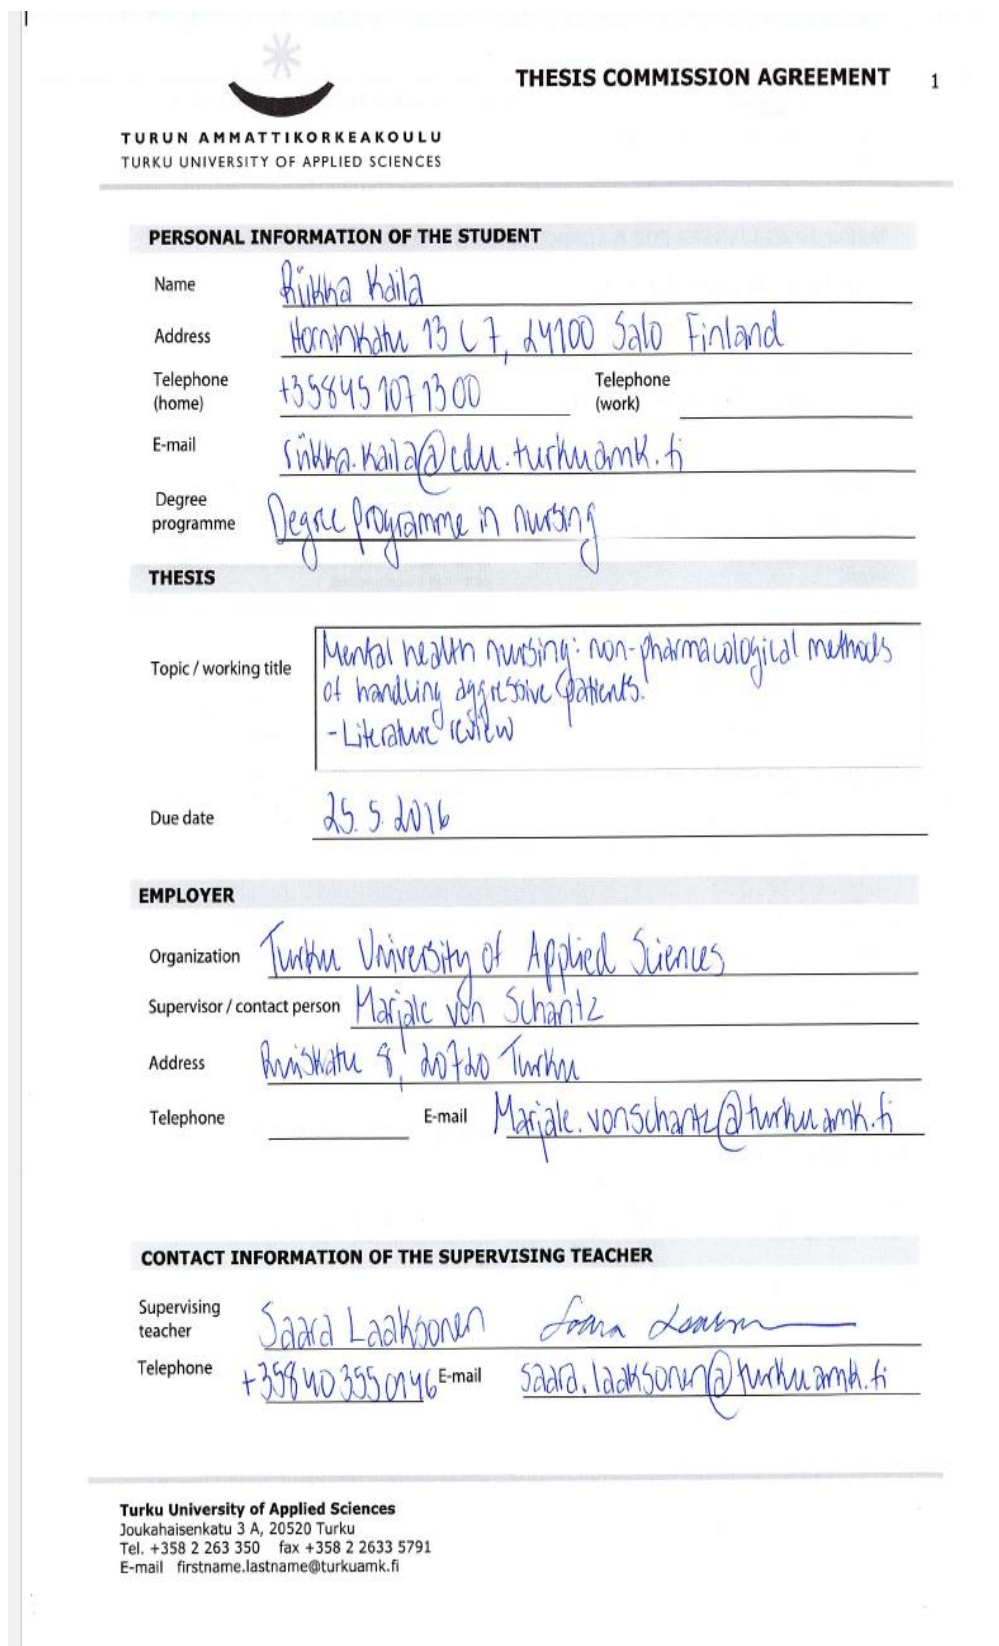 THESIS COMMISSION AGREEMENT 1
TURUN AMMATTIKORKEAKOULU
TURKU UNIVERSITY OF APPLIED SCIENCES
PERSONAL INFORMATION OF THE STUDENT
Name Riikka Kaila
Address Horninkatu 13 C 7, 24100 Salo Finland
Telephone (home) +35845 107 13 00 Telephone (work)
E-mail riikka.kaila@edu.turkuamk.fi
Degree programme Degree programme in nursing
THESIS
Topic / working title Mental health nursing: non-pharmacological methods
of handling aggressive patients.
- Literature review
Due date 25.5.2016
EMPLOYER
Organization Turku University of Applied Sciences
Supervisor / contact person Marjale von Schantz
Address Ruiskatu 8, 20720 Turku
Telephone E-mail Marjale.vonschantz@turkuamk.fi
CONTACT INFORMATION OF THE SUPERVISING TEACHER
Supervising teacher Saara Laaksonen
Telephone +358403550146 E-mail saara.laaksonen@turkuamk.fi
Turku University of Applied Sciences
Joukahaisenkatu 3 A, 20520 Turku
Tel. +358 2 263 350 fax +358 2 2633 5791
E-mail firstname.lastname@turkuamk.fi